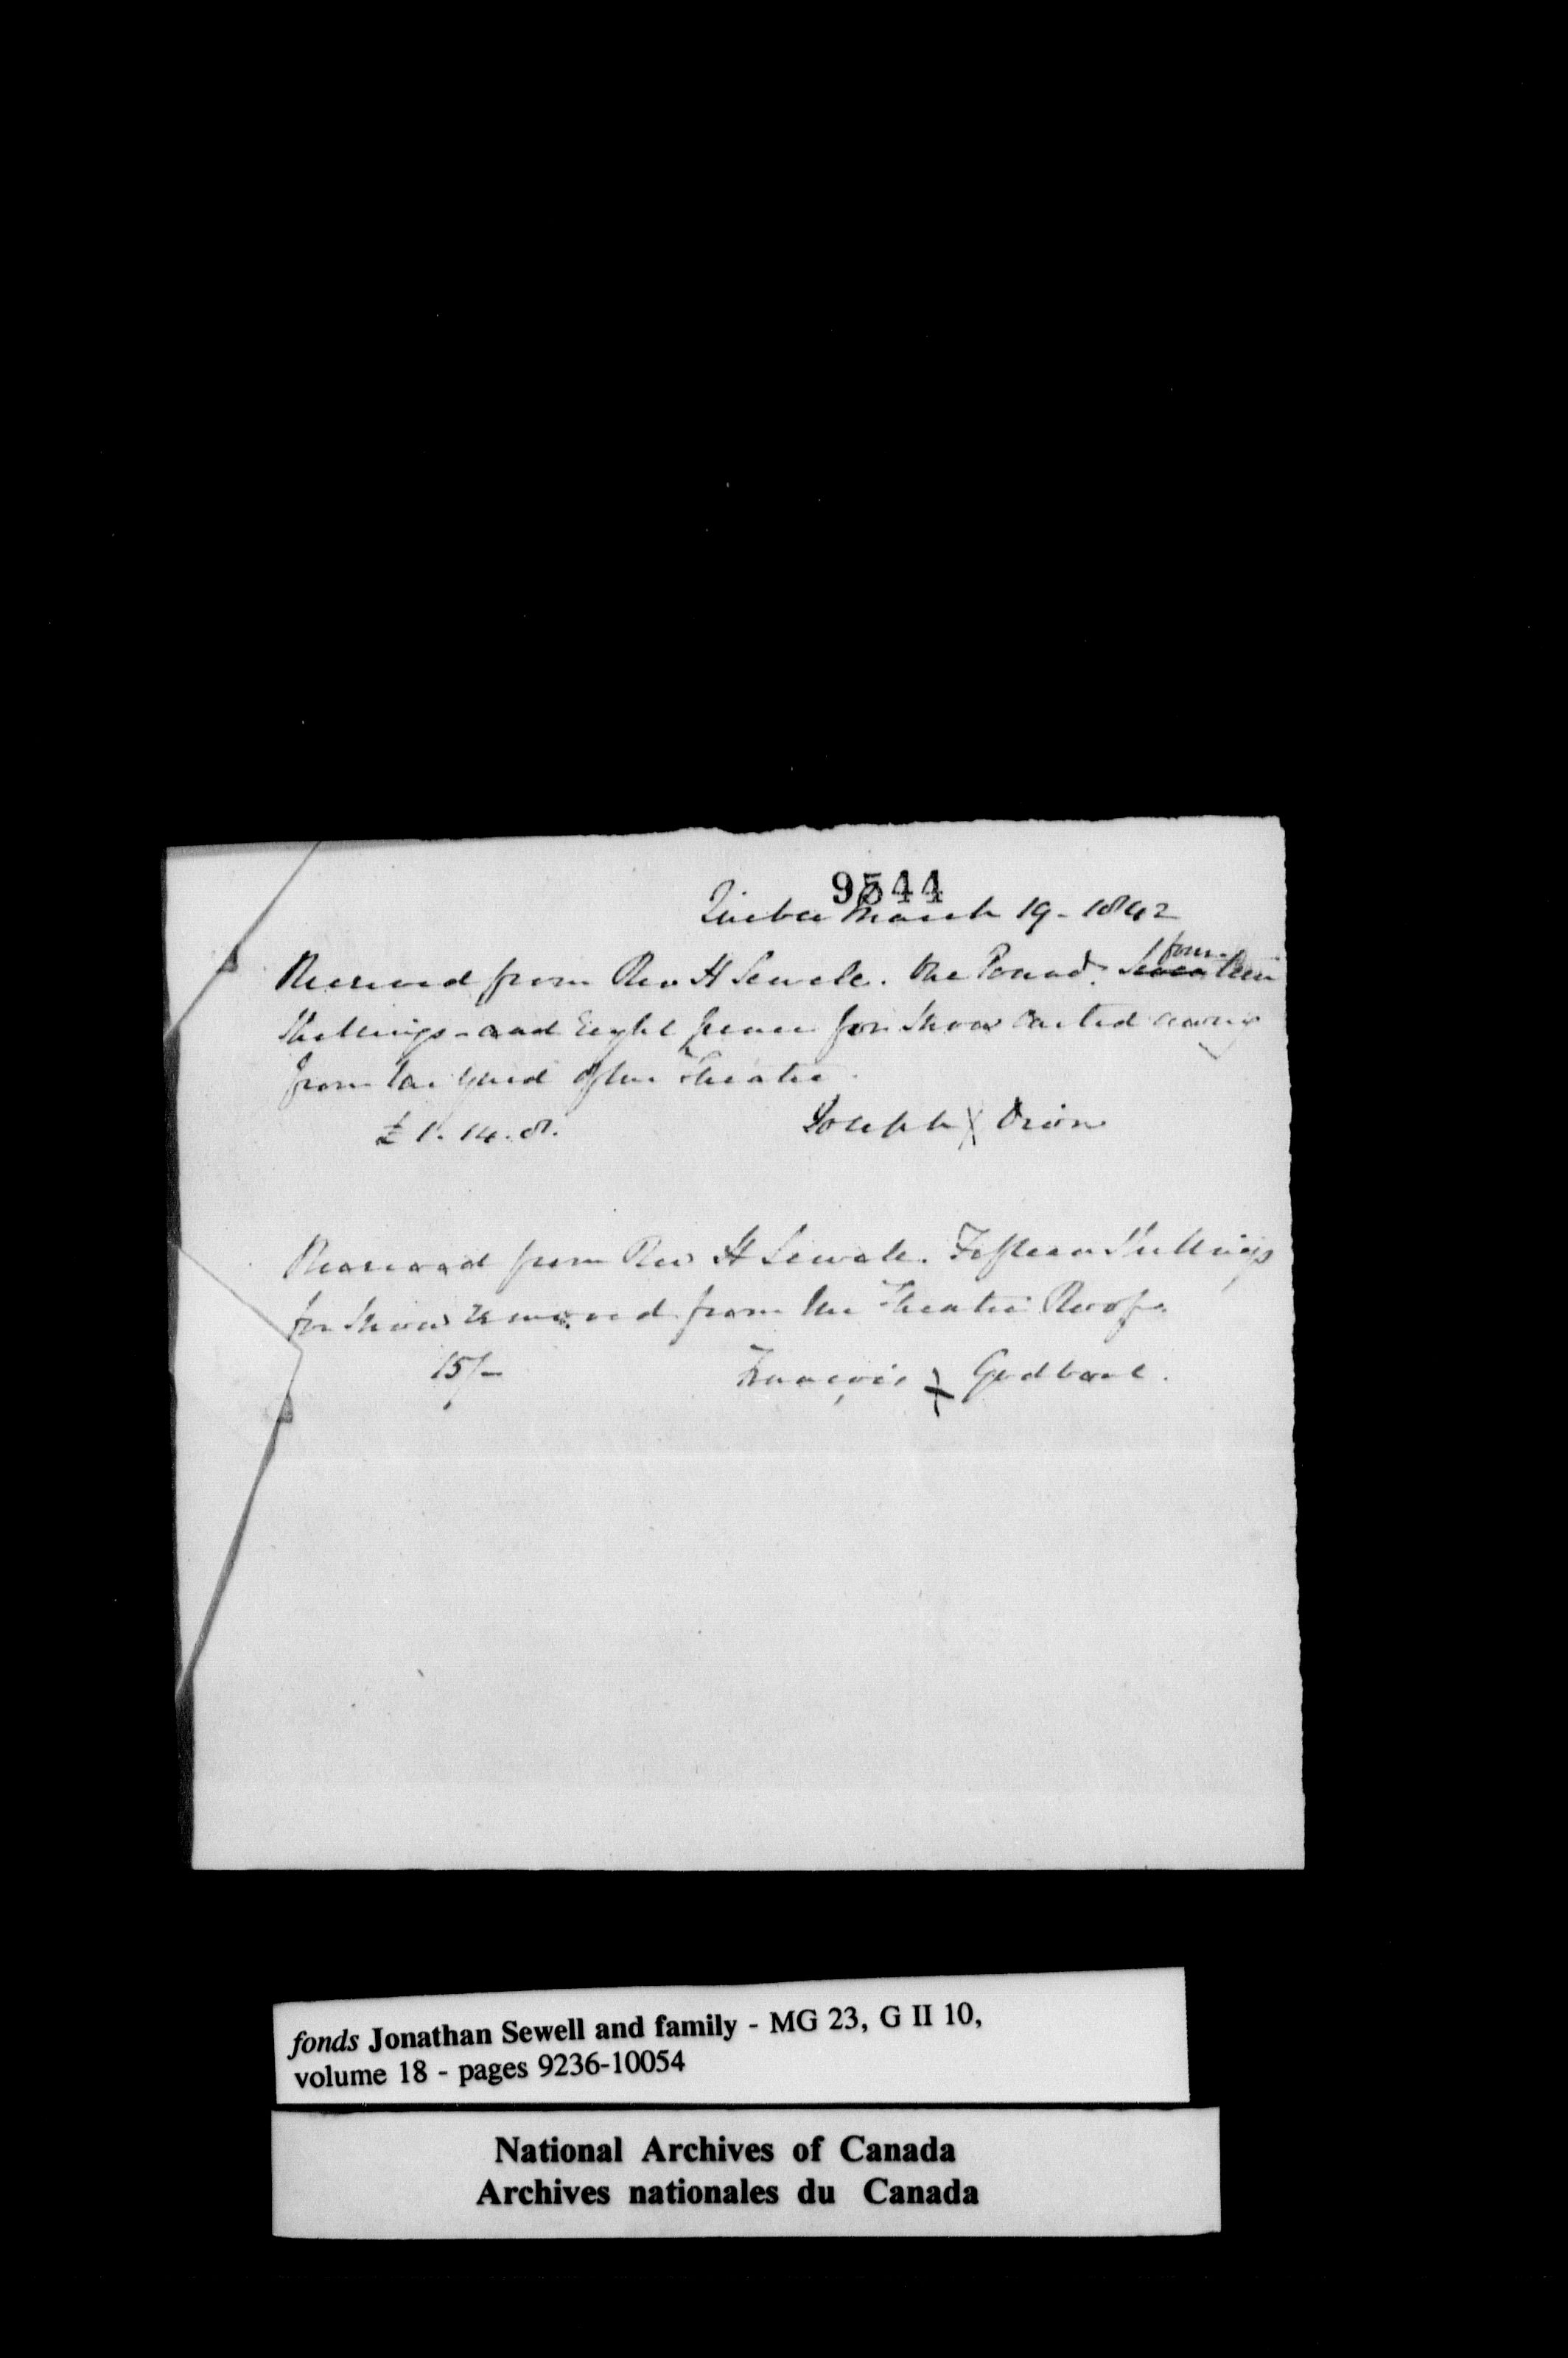 9544
Quebec March 19 - 1842
Received from Rev H Sewell. One Pound. four
Seventeen
Shillings - and Eight pence for Snow Carted away
from the Yard of the Theatre.
£ 1. 14. 8. Joseph X Drion
Received from Rev H Sewell. Fifteen Shillings
for Snow removed from the Theatre Roof.
15/- François X Godbout.
fonds Jonathan Sewell and family - MG 23, G II 10,
volume 18 - pages 9236-10054
National Archives of Canada
Archives nationales du Canada